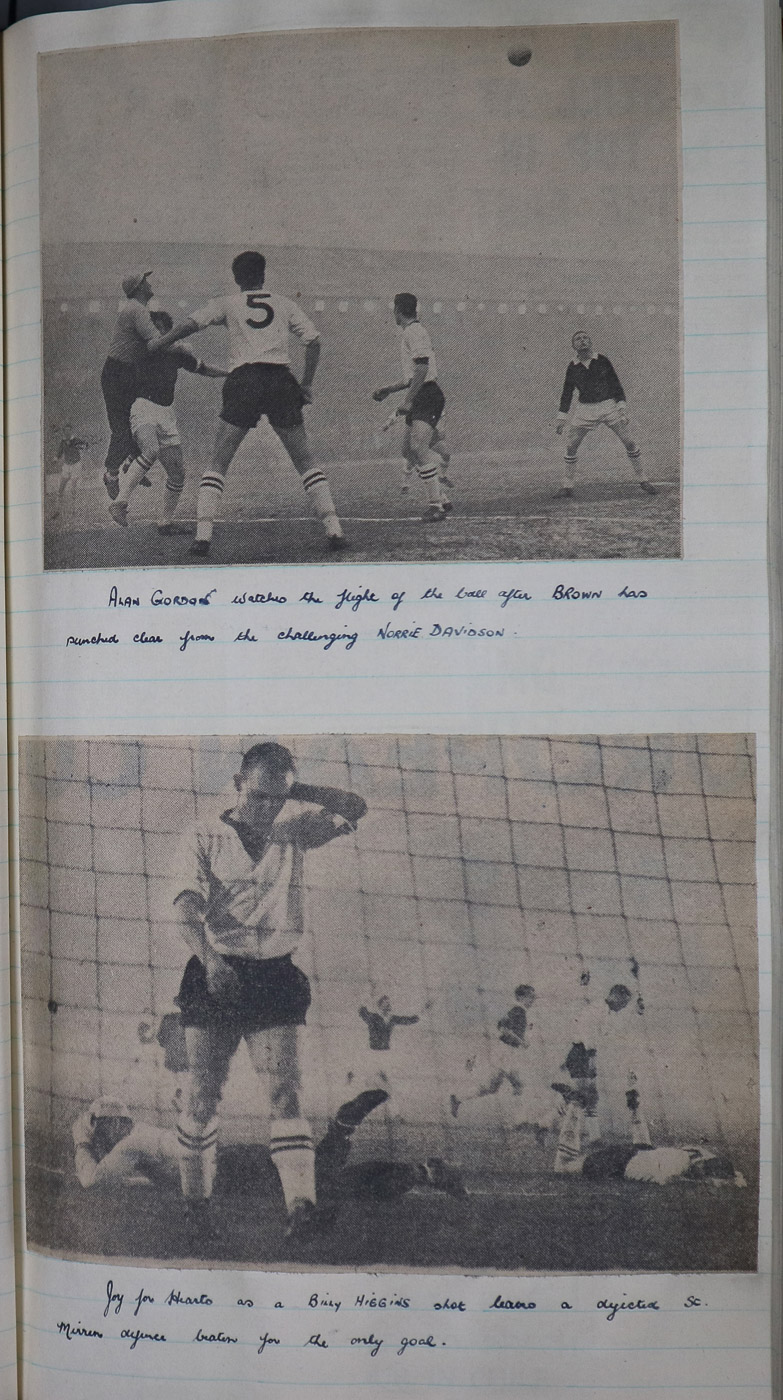 5
ALAN GORDON watches the flight of the ball after BROWN has
punched clear from the challenging NORRIE DAVIDSON.
Joy for Hearts as a Billy HIGGINS shot leaves a dejected St.
Mirren defence beaten for the only goal.